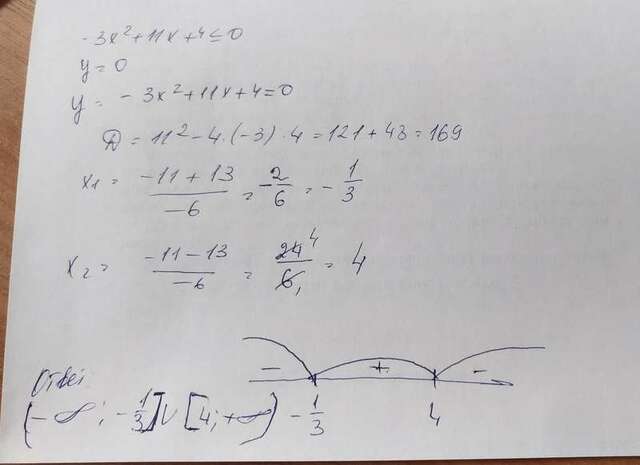 -3x²+11x+4≤0
y=0
y= -3x²+11x+4=0
D=11²-4·(-3)·4=121+48=169
x₁= (-11+13)/(-6) = -2/6 = -1/3
x₂= (-11-13)/(-6) = 24/6 = 4
- + -
-1/3 4
Ответ
(-∞; -1/3]∪[4;+∞)